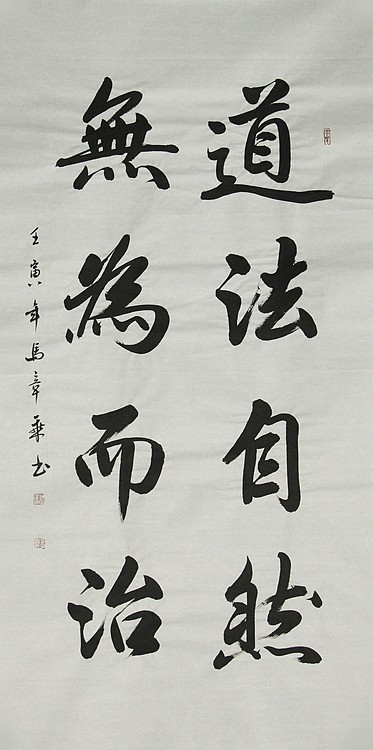 道法自然
無為而治
壬寅年馬章乘书